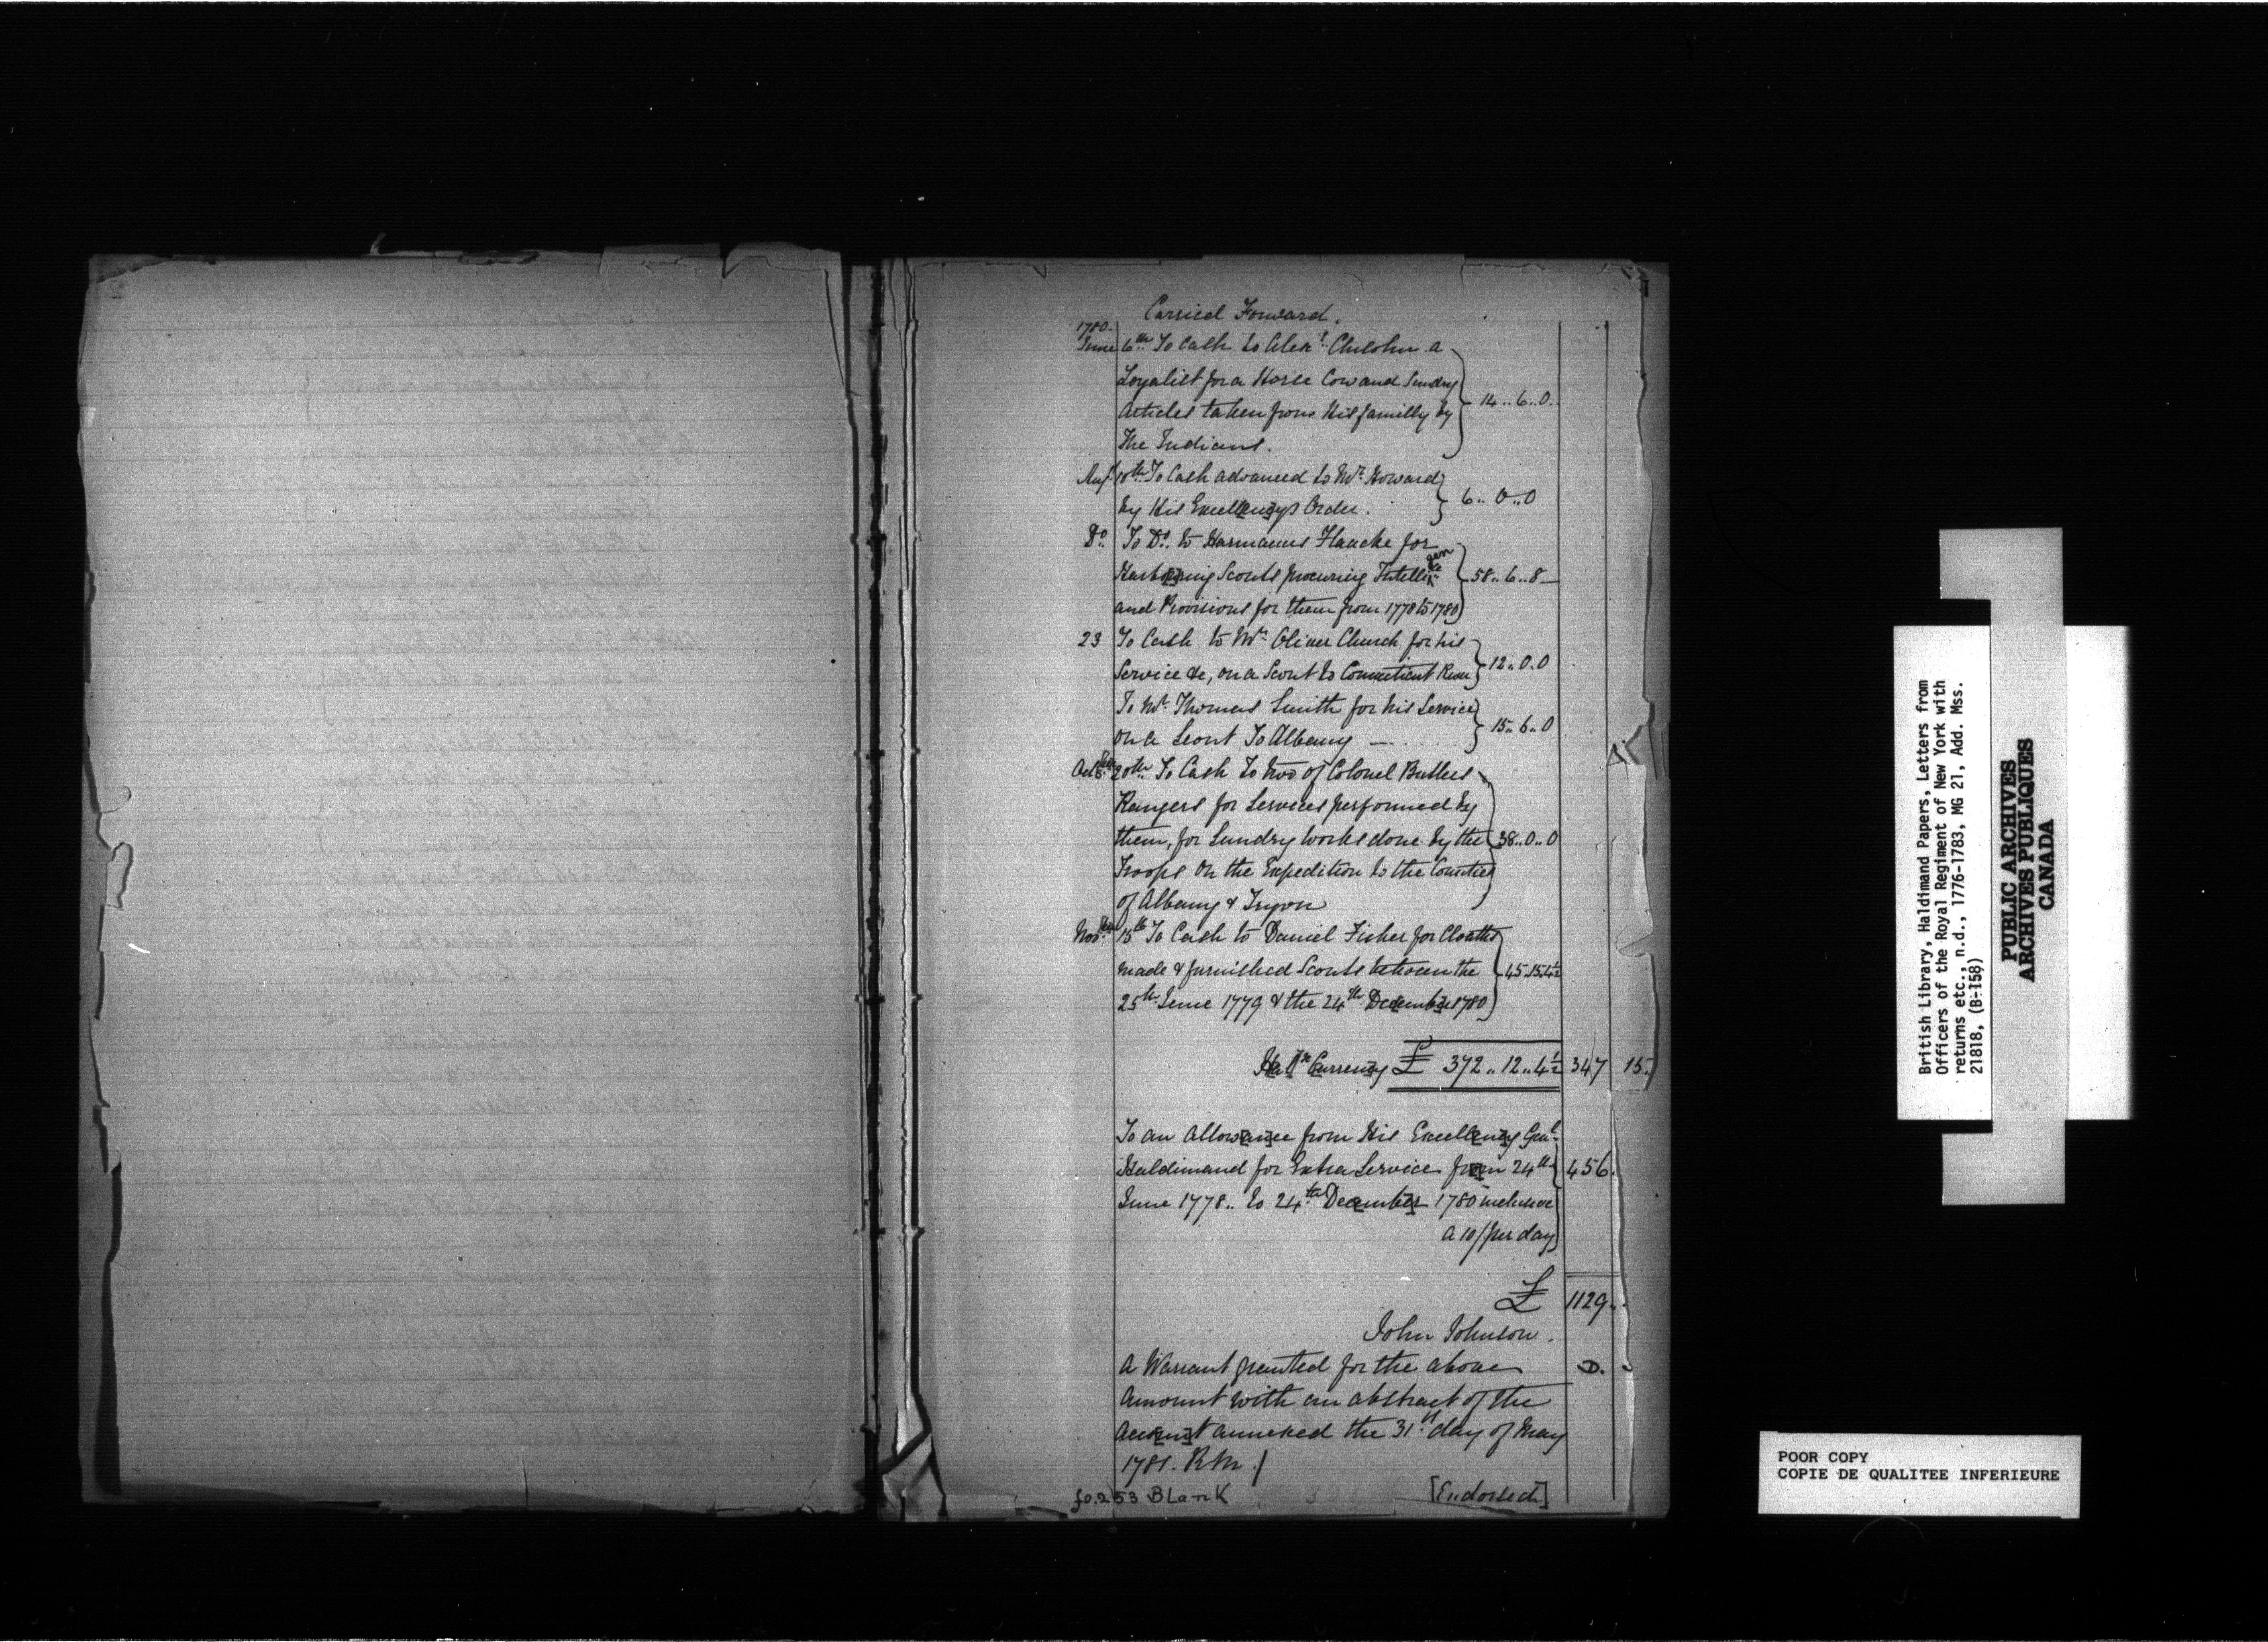 Carried Forward.
1780.
June 6th. To Cash to Alexr. Chisholm a
Loyalist for a Horse Cow and Sundry
Articles taken from His familly by
The Indians. 14..6..0.
Augt. 10th. To Cash advanced to Mr. Howard
by His Excell[en]cys Order. 6..0..0
Do. To Do. to Harmanus Flancke for
Harbo[u]ring Scouts procuring Intelligence
and Provisions for them from 1778 to 1780 58..6..8
23 To Cash to Mr. Oliver Church for his
Service &c, on a Scout to Connecticut River 12..0.0
To Mr. Thomas Smith for his Service
on a Scout To Albany 15..6..0
Octber. 20th. To Cash To two of Colonel Butlers
Rangers for Services performed by
them, for Sundry works done by the 38..0..0
Troops On the Expedition to the Counties
of Albany & Tryon
Novber. 15th To Cash to Daniel Fisher for Cloaths
made & furnished Scouts between the 45.15.4½
25th. June 1779 & the 24th. Dec[em]b[e]r 1780
Hal[ifa]x Curren[c]y £ 372..12..4½ 347 15.
To an allow[an]ce from His Excell[en]cy Genl.
Haldimand for Extra Service fr[o]m 24th 456.
June 1778.. to 24th Dec[em]b[e]r 1780 inclusive
a 10/ per day
£ 1129..
John Johnson.
A Warrant granted for the above D.
Amount with an abstract of the
Acc[oun]t annexed the 31st. day of May
1781. R M./
fo.253 Blank [Endorsed]
British Library, Haldimand Papers, Letters from
Officers of the Royal Regiment of New York with
returns etc., n.d., 1776-1783, MG 21, Add. Mss.
21818, (B-158)
PUBLIC ARCHIVES
ARCHIVES PUBLIQUES
CANADA
POOR COPY
COPIE DE QUALITEE INFERIEURE